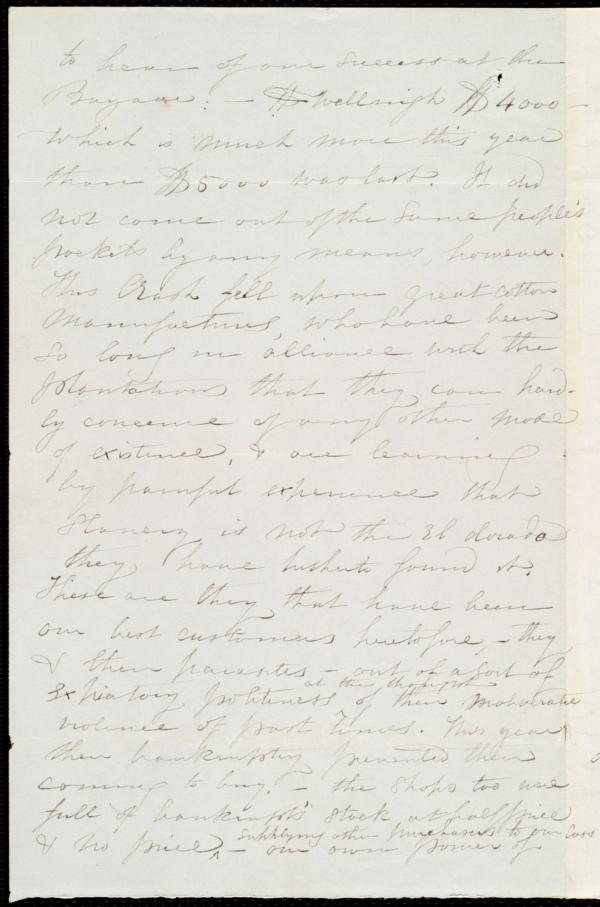 to hear of our success at the
Bazaar: — $ Wellnigh $4000 —
which is much more this year
than $5000 was last. It did
not come out of the same people's
pockets by any means, however.
This Crash fell upon great cotton
Manufacturers, who have been
so long in alliance with the
plantations that they can hard-
ly conceive of any other mode
of existence, & are learning
by painful experience that
Slavery is not the El dorado
they have hitherto found it.
These are they that have been
our best customers heretofore, — they
& their parasites — out of a sort of
Expiatory politeness at the thought of their mobocratic
violence of past times. This year
their bankruptcy prevented their
coming to buy. — the shops too were
full of bankrupt's stock at half price
& no price, supplying other purchasers to our loss
— our own power of